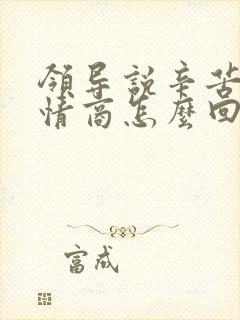 領导說辛苦
情商怎麼回
富成